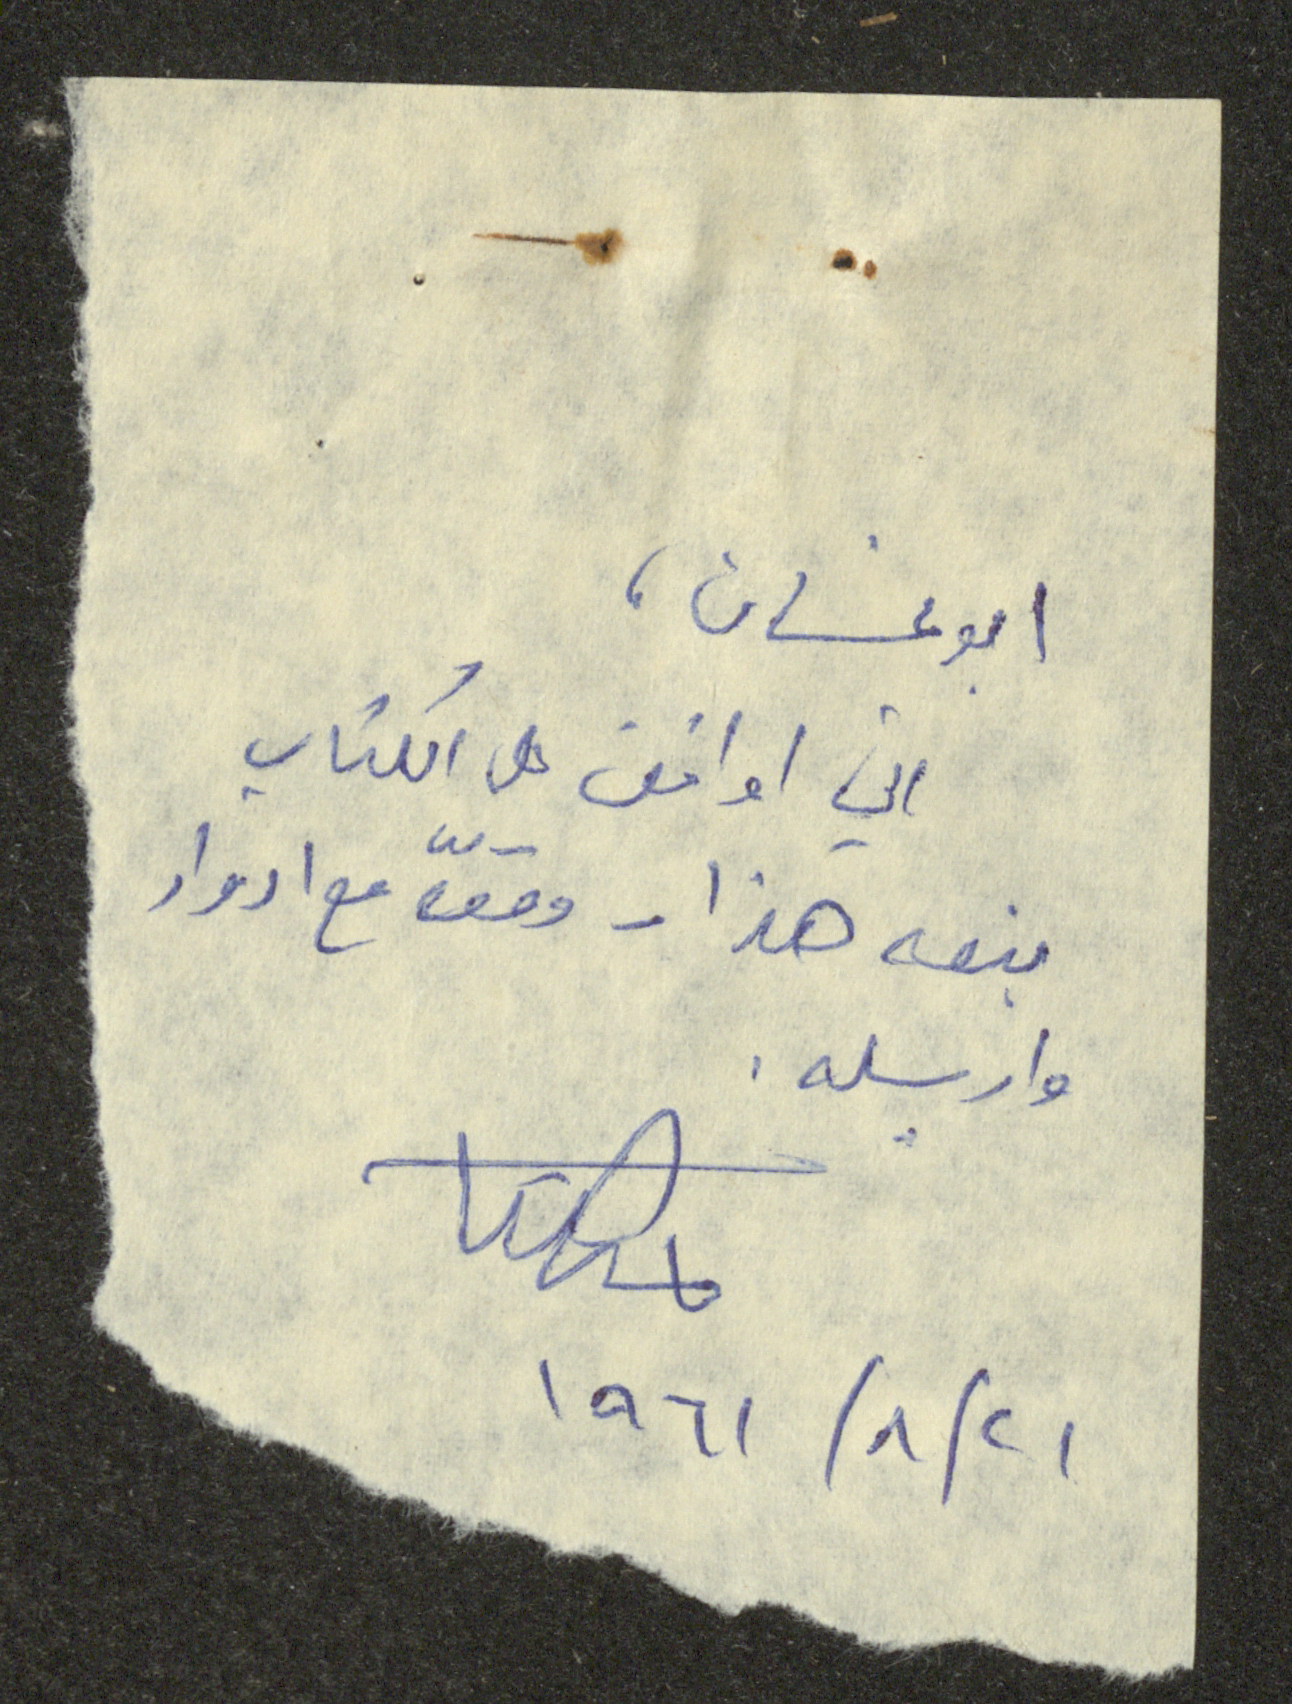 ابو غسان ،
اني اوافق على الكتاب
بنصه هذا - وقعه مع ادوار
وارسله .
٢١/٨/١٩٦١